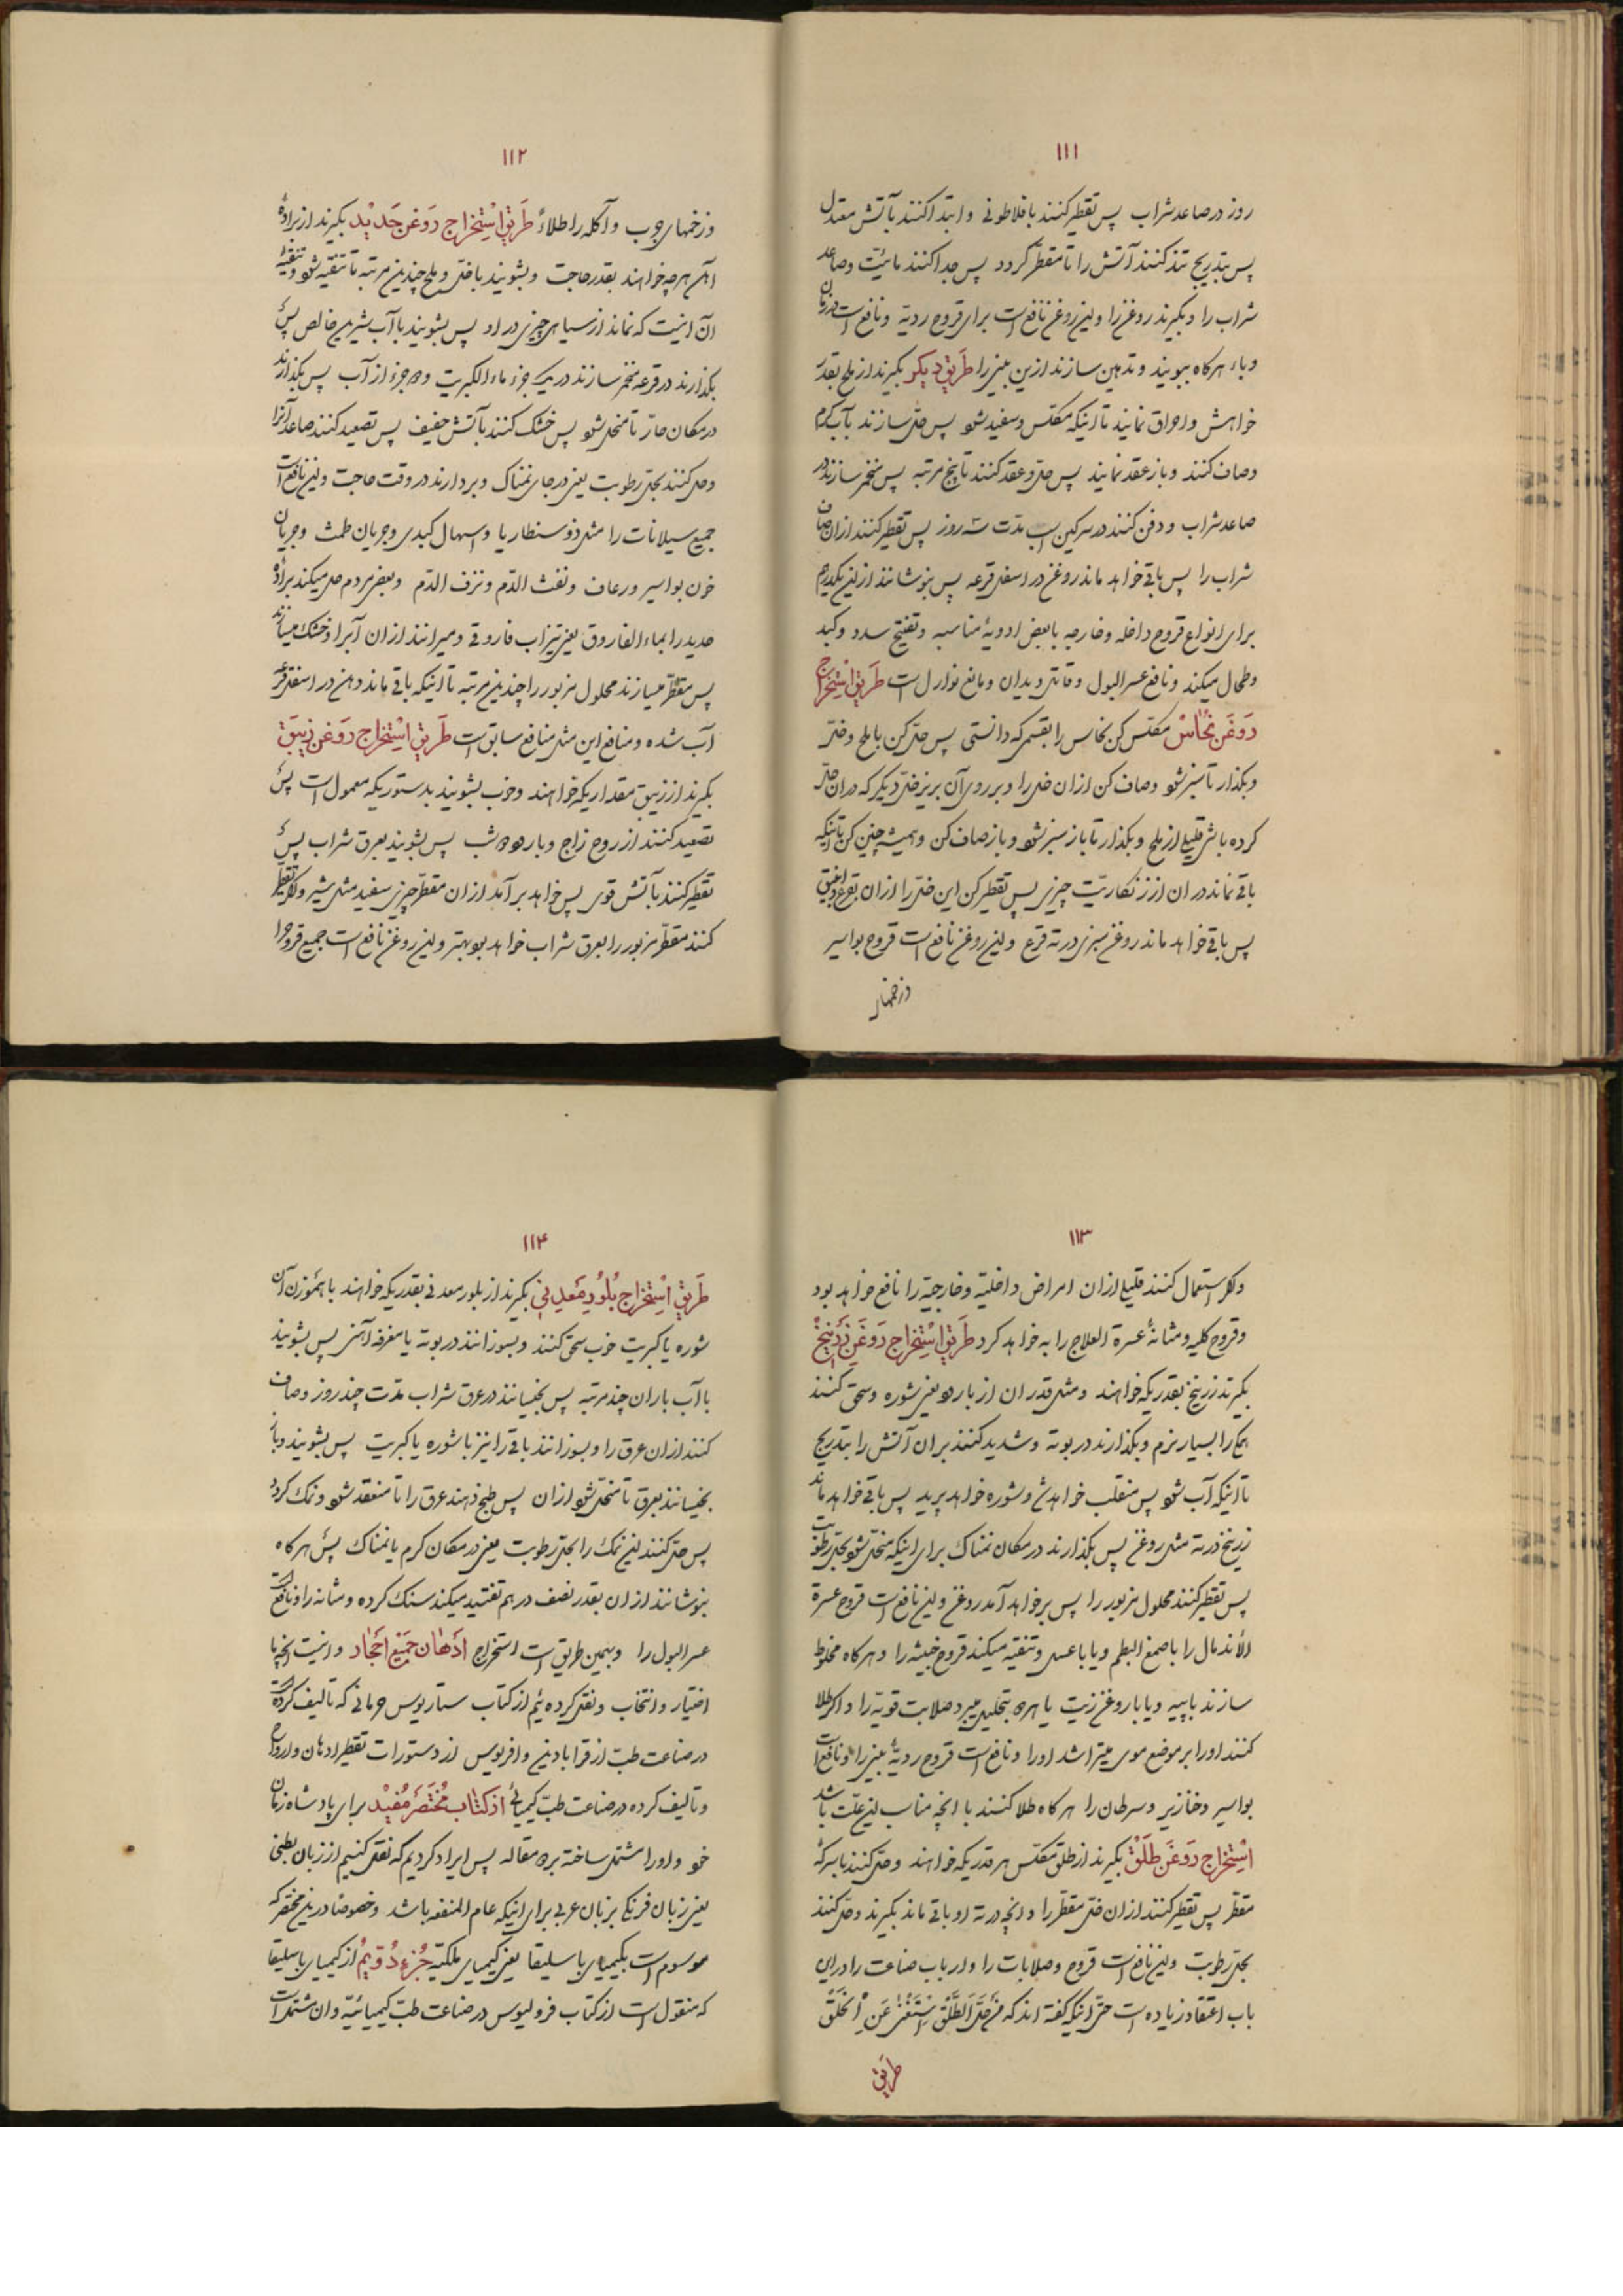 ۱۱۱
روز در صاعد شراب پس تقطیر کنند بافلاطونی و ابتدا کنند بآتش معتدل
پس بتدریج تند کنند آتش را تا مقطر گردد پس جدا کنند مائیّت و صاعد
شراب را و بگیرند روغن را و این روغن نافع است برای قروح ردیّه و نافع است در زمان
وباء هرگاه ببویند و تدهین سازند ازین بینی را طَریق دیگر بگیرند از ملح بقدر
خواهش و احراق نمایند تا اینکه مکلّس و سفید شود پس حلّ سازند بآب گرم
و صاف کنند و باز عقد نمایند پس حلّ و عقد کنند تا پنج مرتبه پس مخمّر سازند در
صاعد شراب و دفن کنند در سرکین اسب مدّت سه روز پس تقطیر کنند ازان صاف
شراب را پس باقی خواهد ماند روغن در اسفل قرعه پس بنوشانند از این یکدرهم
برای انواع قروح داخله و خارجه با بعض ادویهٔ مناسبه و تفتیح سدد و کبد
و طحال میکند و نافع عسر البول و قاتل دیدان و مانع نوازل است طَریق اسْتِخراج
رَوغَن نُحاسْ مکلّس کن نحاس را بقسمی که دانستی پس حلّ کن با ملح و خلّ
و بگذار تا سبز شود و صاف کن ازان خلّ را و بر روی آن بریز خلّ دیگر که دران حلّ
کرده باشی قلیلی از ملح و بگذار تا باز سبز شود و باز صاف کن و همیشه چنین کن تا اینکه
باقی نماند در ان از زنگاریّت چیزی پس تقطیر کن این خلّ را ازان بقرع و انبیق
پس باقی خواهد ماند روغن سبزی در ته قرع و این روغن نافع است قروح بواسیر
و زخمهای
۱۱۲
و زخمهای جرب و آکله را طلاءً طَریق اسْتِخراج رَوغن حَدیْد بگیرند از برادهٔ
آهن هرچه خواهند بقدر حاجت و بشویند با خلّ و ملح چندین مرتبه تا تنقیه شود و تنقیهٔ
آن اینست که نماند از سیاهی چیزی در او پس بشویند با آب شیرین خالص پس
بگذارند در قرعه مخمّر سازند در یک جزء ماء الکبریت و ده جزء از آب پس بگذارند
در مکان حارّ تا منحل شود پس خشک کنند بآتش خفیف پس تصعید کنند صاعد آنرا
و حل کنند بحلّ رطوبت یعنی در جای نمناک و بردارند در وقت حاجت و این نافع است
جمیع سیلانات را مثل ذوسنطاریا و اسهال کبدی و جریان طمث و جریان
خون بواسیر و رعاف و نفث الدّم و نزف الدّم و بعض مردم حل میکند برادهٔ
حدید را بماء الفاروق یعنی تیزاب فاروقی و میرانند ازان آبرا و خشک میسازند
پس مقطّر میسازند محلول مزبور را چندین مرتبه تا اینکه باقی ماند دهن در اسفل قرع
آب شده و منافع این مثل منافع سابق است طَریق اسْتِخراج رَوغَن زیبَق
بگیرند از زیبق مقداریکه خواهند و خوب بشویند بدستوریکه معمول است پس
تصعید کنند از روح زاج و بارود شب پس بشویند بعرق شراب پس
تقطیر کنند بآتش قوی پس خواهد برآمد ازان مقطّر چیزی سفید مثل شیر و اگر تقطیر
کنند مقطّر مزبور را بعرق شراب خواهد بود بهتر و این روغن نافع است جمیع قروح را
۱۱۳
و اگر استعمال کنند قلیلی ازان امراض داخلیّه و خارجیّه را نافع خواهد بود
و قروح کلیه و مثانهٔ عسرة العلاج را به خواهد کرد طَریق اسْتِخراج رَوغَن زَرنیخْ
بگیرند زرنیخ بقدریکه خواهند و مثل قدر ان از بارود یعنی شوره و سحق کنند
همه را بسیار نرم و بگذارند در بوته و شدید کنند بران آتش را بتدریج
تا اینکه آب شود پس منقلب خواهد شد و شوره خواهد پرید پس باقی خواهد ماند
زرنیخ در ته مثل روغن پس بگذارند در مکان نمناک برای اینکه منحل شود بحلّ رطوبت
پس تقطیر کنند محلول مزبور را پس برخواهد آمد روغن و این نافع است قروح عسرة
الاندمال را با صمغ البطم و یا با عسل و تنقیه میکند قروح خبیثه را و هرگاه مخلوط
سازند با پیه و یا با روغن زیت یا هر دو بتحلیل میبرد صلابت قویّه را و اگر طلا
کنند اورا بر موضع موی میتراشد اورا و نافع است قروح ردیّهٔ بینی را و نافع است
بواسیر و خنازیر و سرطان را هرگاه طلا کنند با آنچه مناسب این علّت باشد
اسْتِخراج رَوغَن طَلَقْ بگیرند از طلق مکلّس هر قدریکه خواهند و حلّ کنند با سرکهٔ
مقطّر پس تقطیر کنند ازان خلّ مقطّر را و آنچه در ته او باقی ماند بگیرند و حلّ کنند
بحلّ رطوبت و این نافع است قروح و صلابات را و ارباب صناعت را در این
باب اعتقاد زیاده است حتّی اینکه گفته اند که مَنْ حَلَّ الطَّلْقَ اسْتَغْنیٰ عَنِ الْخَلْقِ
طَریق
۱۱۴
طَریق اسْتِخراج بُلُورِ مَعدِنی بگیرند از بلور معدنی بقدریکه خواهند با هموزن آن
شوره یا کبریت خوب سحق کنند و بسوزانند در بوته یا مغرفه آهنی پس بشویند
با آب باران چند مرتبه پس بخیسانند در عرق شراب مدّت چند روز و صاف
کنند ازان عرق را و بسوزانند باقی را نیز با شوره یا کبریت پس بشویند و باز
بخیسانند بعرق تا منحل شود ازان پس طبخ دهند عرق را تا منعقد شود و نمک گردد
پس حل کنند این نمک را بحلّ رطوبت یعنی در مکان گرم یا نمناک پس هرگاه
بنوشانند ازان بقدر نصف درهم تفتیت میکند سنک کرده و مثانه را و نافع است
عسر البول را و بهمین طریق است استخراج ادَهان جَمیْع احْجار و اینست آنچه ما
اختیار و انتخاب و نقل کرده ئیم از کتاب ستاریوس جرمانی که تالیف کرده است
در صناعت طبّ از قرابادین وافریوس از دستورات تقطیر ادهان و ارواح
و تألیف کرده در صناعت طبّ کیمیائی از کتاب مُخْتَصَر مُفیْد برای پادشاه زمان
خود و اورا مشتمل ساخته برده مقاله پس ایراد کردیم که نقل کنیم از زبان لطینی
یعنی زبان فرنگی بزبان عربی برای اینکه عام المنفعه باشد و خصوصًا درین مختصر که
موسوم است بکیمیای باسلیقا یعنی کیمیای ملکیّه جُزء دُویُم از کیمیای باسلیقا
که منقول است از کتاب قرولیوس در صناعت طبّ کیمیائیّه و ان مشتمل است